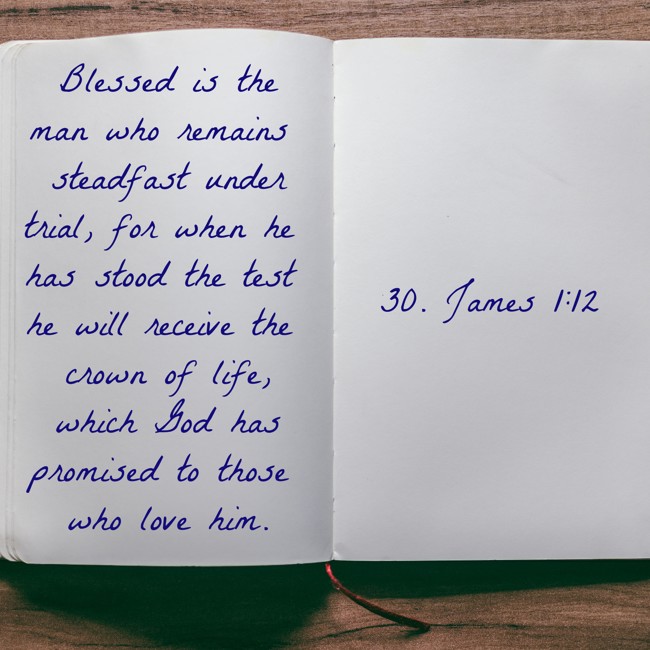 Blessed is the
man who remains
steadfast under
trial, for when he
has stood the test
he will receive the
crown of life,
which God has
promised to those
who love him.
30. James 1:12